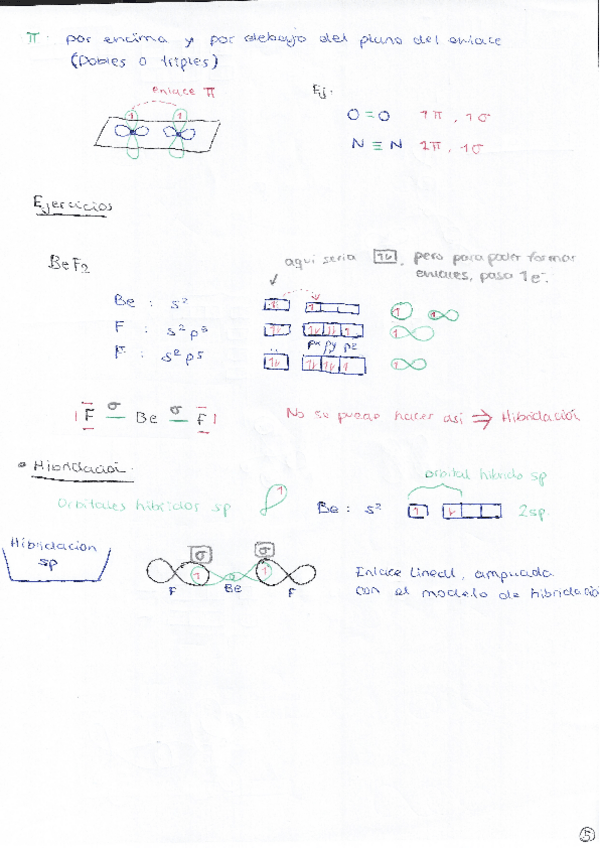 π: por encima y por debajo del plano del enlace
(Dobles o triples)
enlace π
Ej.
O = O 1π, 1σ
N ≡ N 2π, 1σ
Ejercicios
BeF2
aquí seria ↑↓, pero para poder formar
enlaces, pasa 1e-.
Be : s²
F : s² p⁵
px py pz
F : s² p⁵
|F σ Be σ F|
No se puede hacer así ⇒ Hibridación
• Hibridación.
orbital hibrido sp
Orbitales hibridos sp
Be: s² 2sp.
Hibridacion
sp
σ σ
F Be F
Enlace lineal, ampliada
con el modelo de hibridació
5